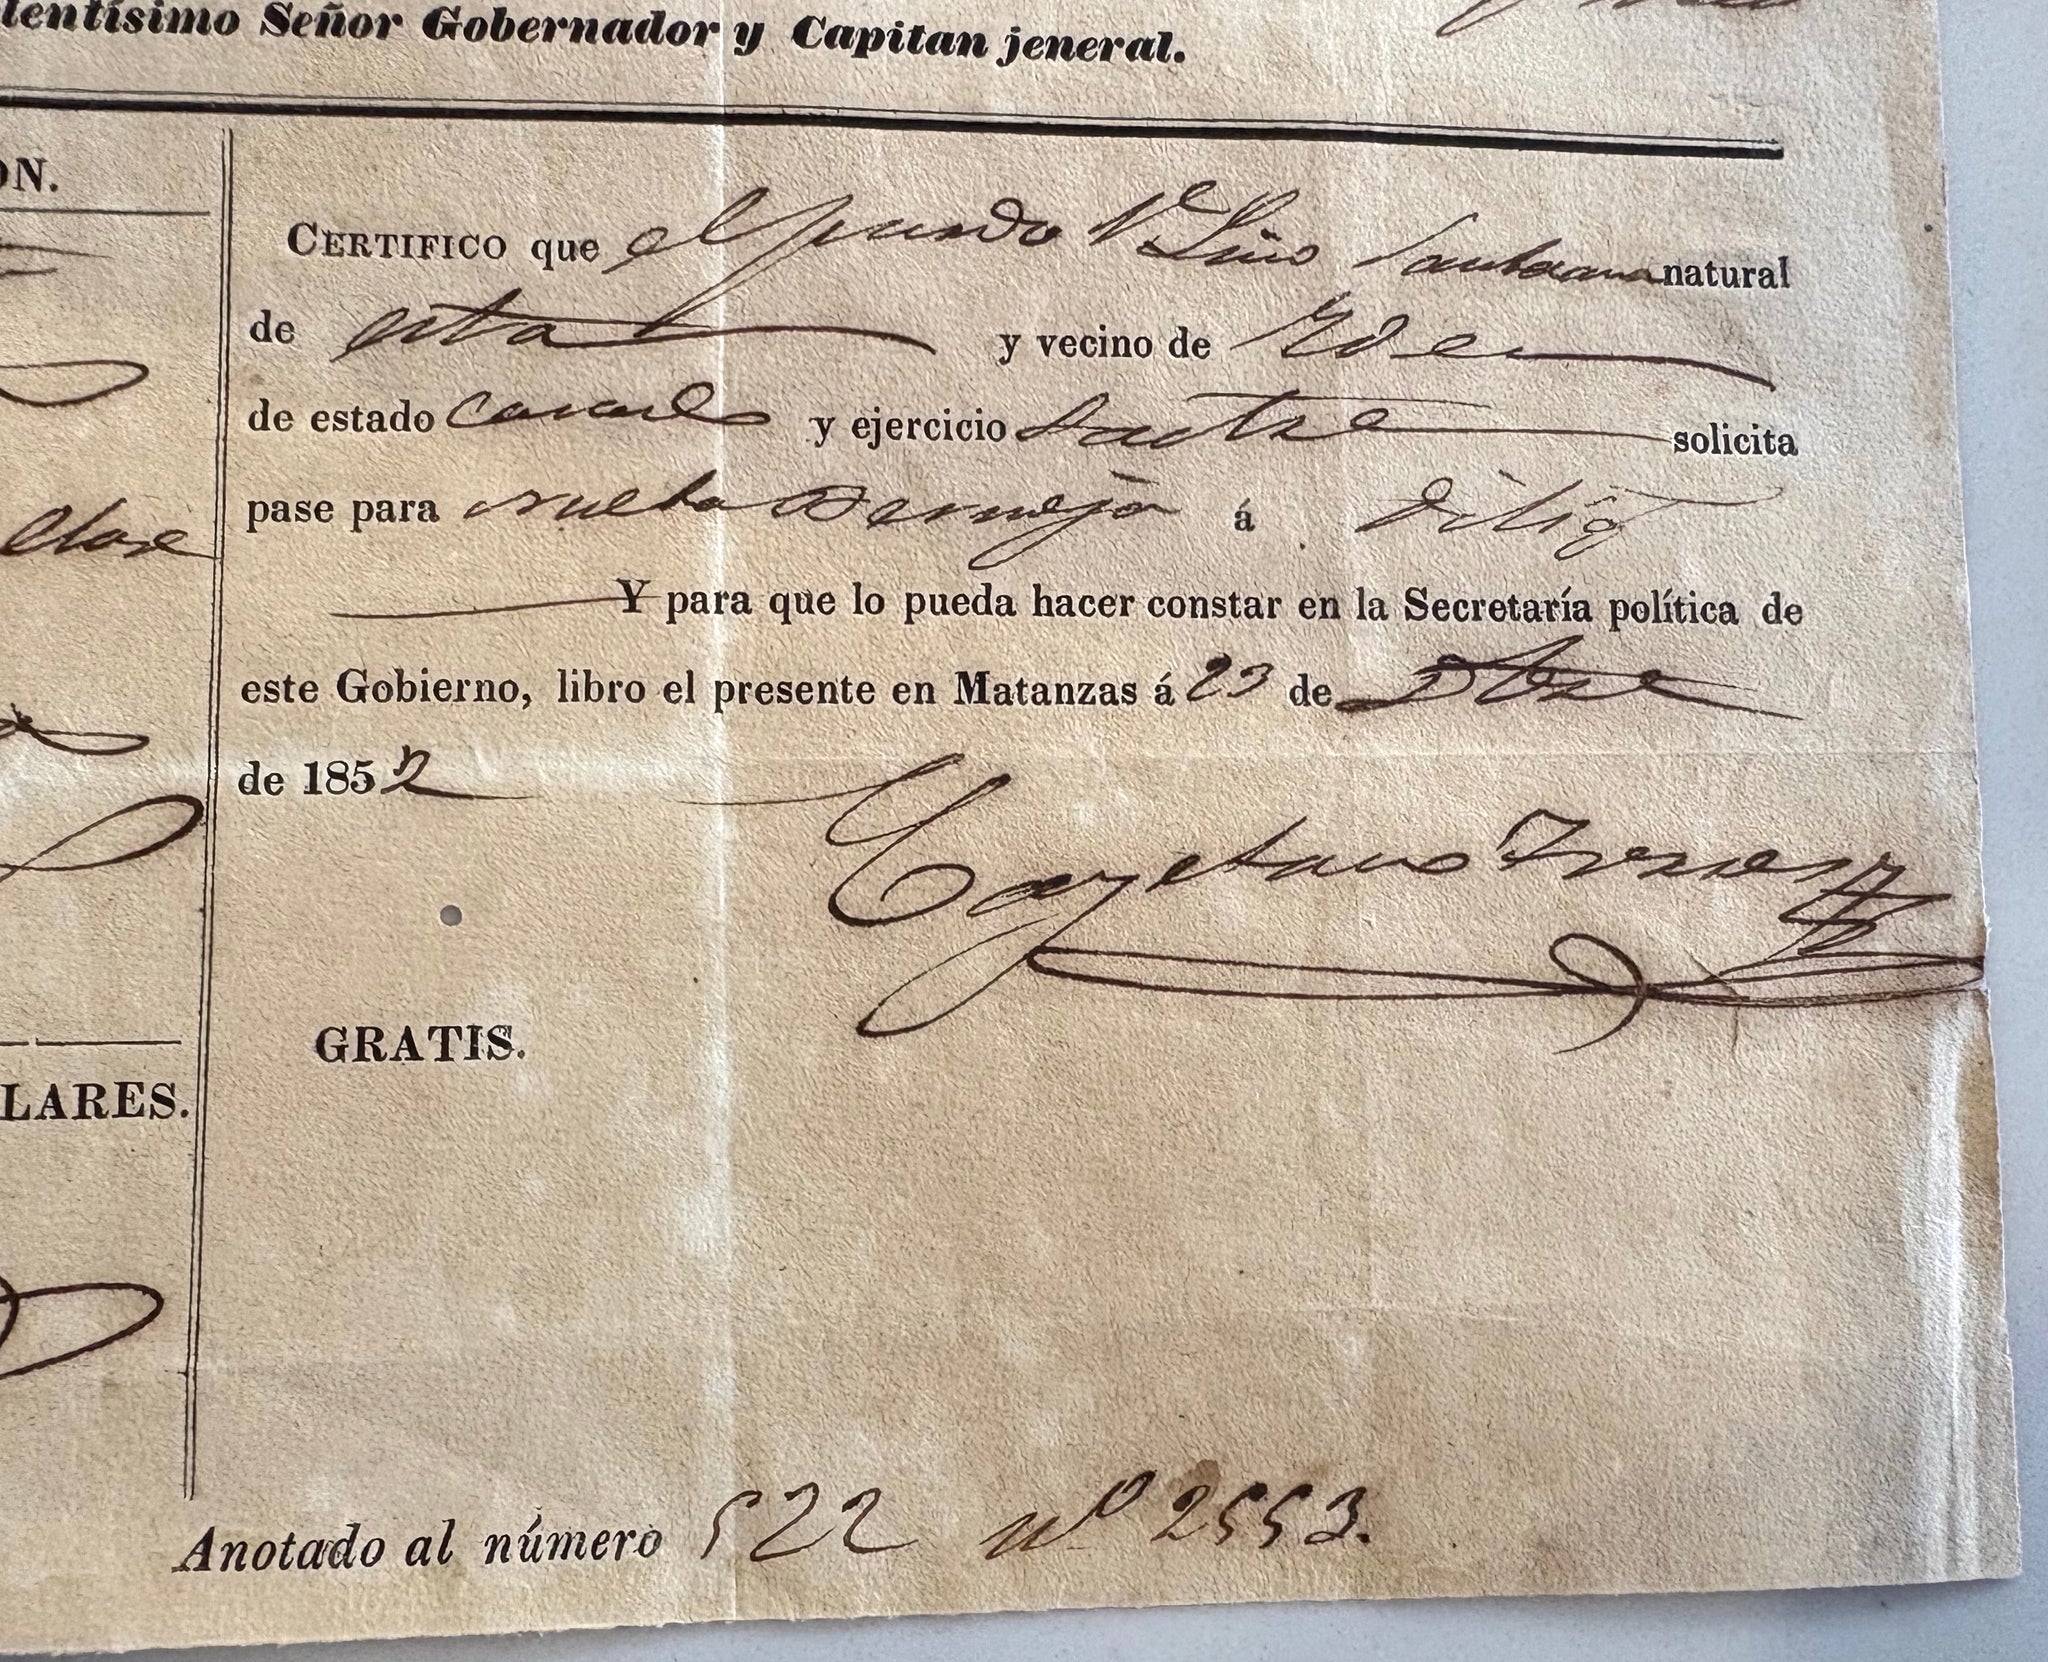 lentísimo Señor Gobernador y Capitan jeneral.
ON.
CERTIFICO que el pardo Lino Santana natural
de esta y vecino de Idem
de estado casado y ejercicio Sastre solicita
pase para vuelta Bermeja á dilig
clase
Y para que lo pueda hacer constar en la Secretaría política de
este Gobierno, libro el presente en Matanzas á 23 de
de 1852
Cayetano
GRATIS.
LARES.
Anotado al número 522 nº 2553.